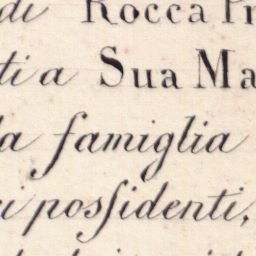 di Rocca Pr
ti a Sua Ma
la famiglia
ri poſsidenti,